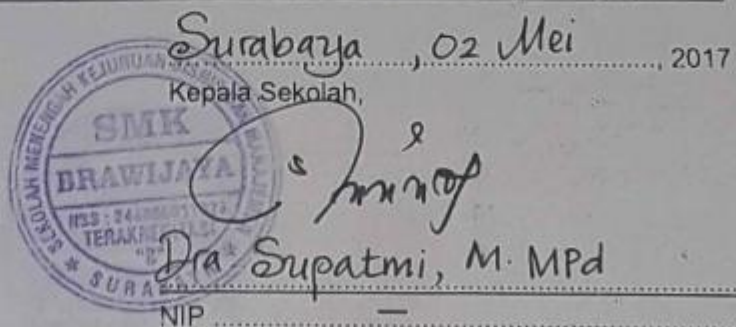 Surabaya, 02 Mei, 2017
Kepala Sekolah,
SEKOLAH MENENGAH KEJURUAN
SMK
BRAWIJAYA
NSS :
* SURA
Dra Supatmi, M. MPd
NIP —